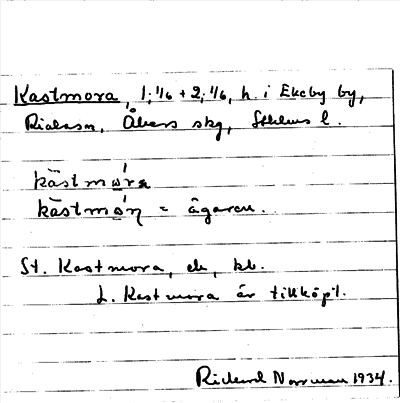 Kastmora, 1; 1/6 + 2; 1/6, h. i Ekeby by,
Åkers skg, Sthlms l.
kastmora
= ägaren.
St. Kastmora, ek, kb.
L. Kastmora är tillköpt.
Rickard Norrman 1934.